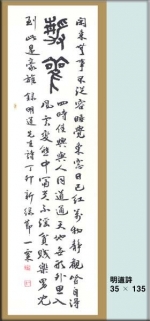 閑來無事不從容睡覺東窓日已紅萬物靜觀皆自得
四時佳興與人同道通天地有形外思入
風雲變態中富貴不淫貧賤樂男兒
到此是豪雄錄明道先生詩丁卯新
明道詩
35 × 135